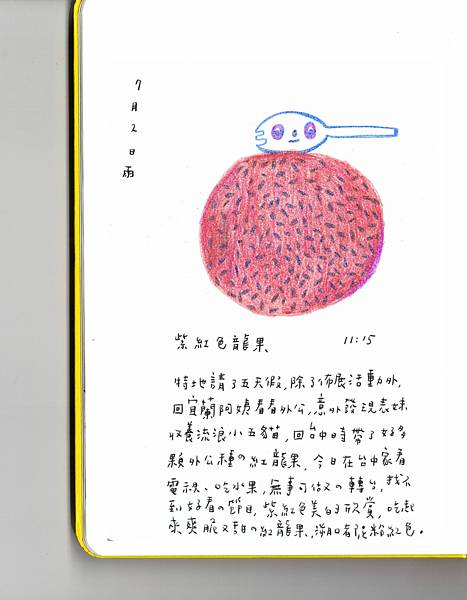 7月2日雨
紫紅色龍果 11:15
特地請了五天假,除了佈展活動外,
回宜蘭阿姨看看外公,意外發現表妹
收養流浪小五貓,回台中時帶了好多
顆外公種の紅龍果,今日在台中家看
電視、吃水果,無事可做又の轉台,找不
到好看の節目,紫紅色美的欣賞,吃起
來爽脆又甜の紅龍果,滿口都是粉紅色。